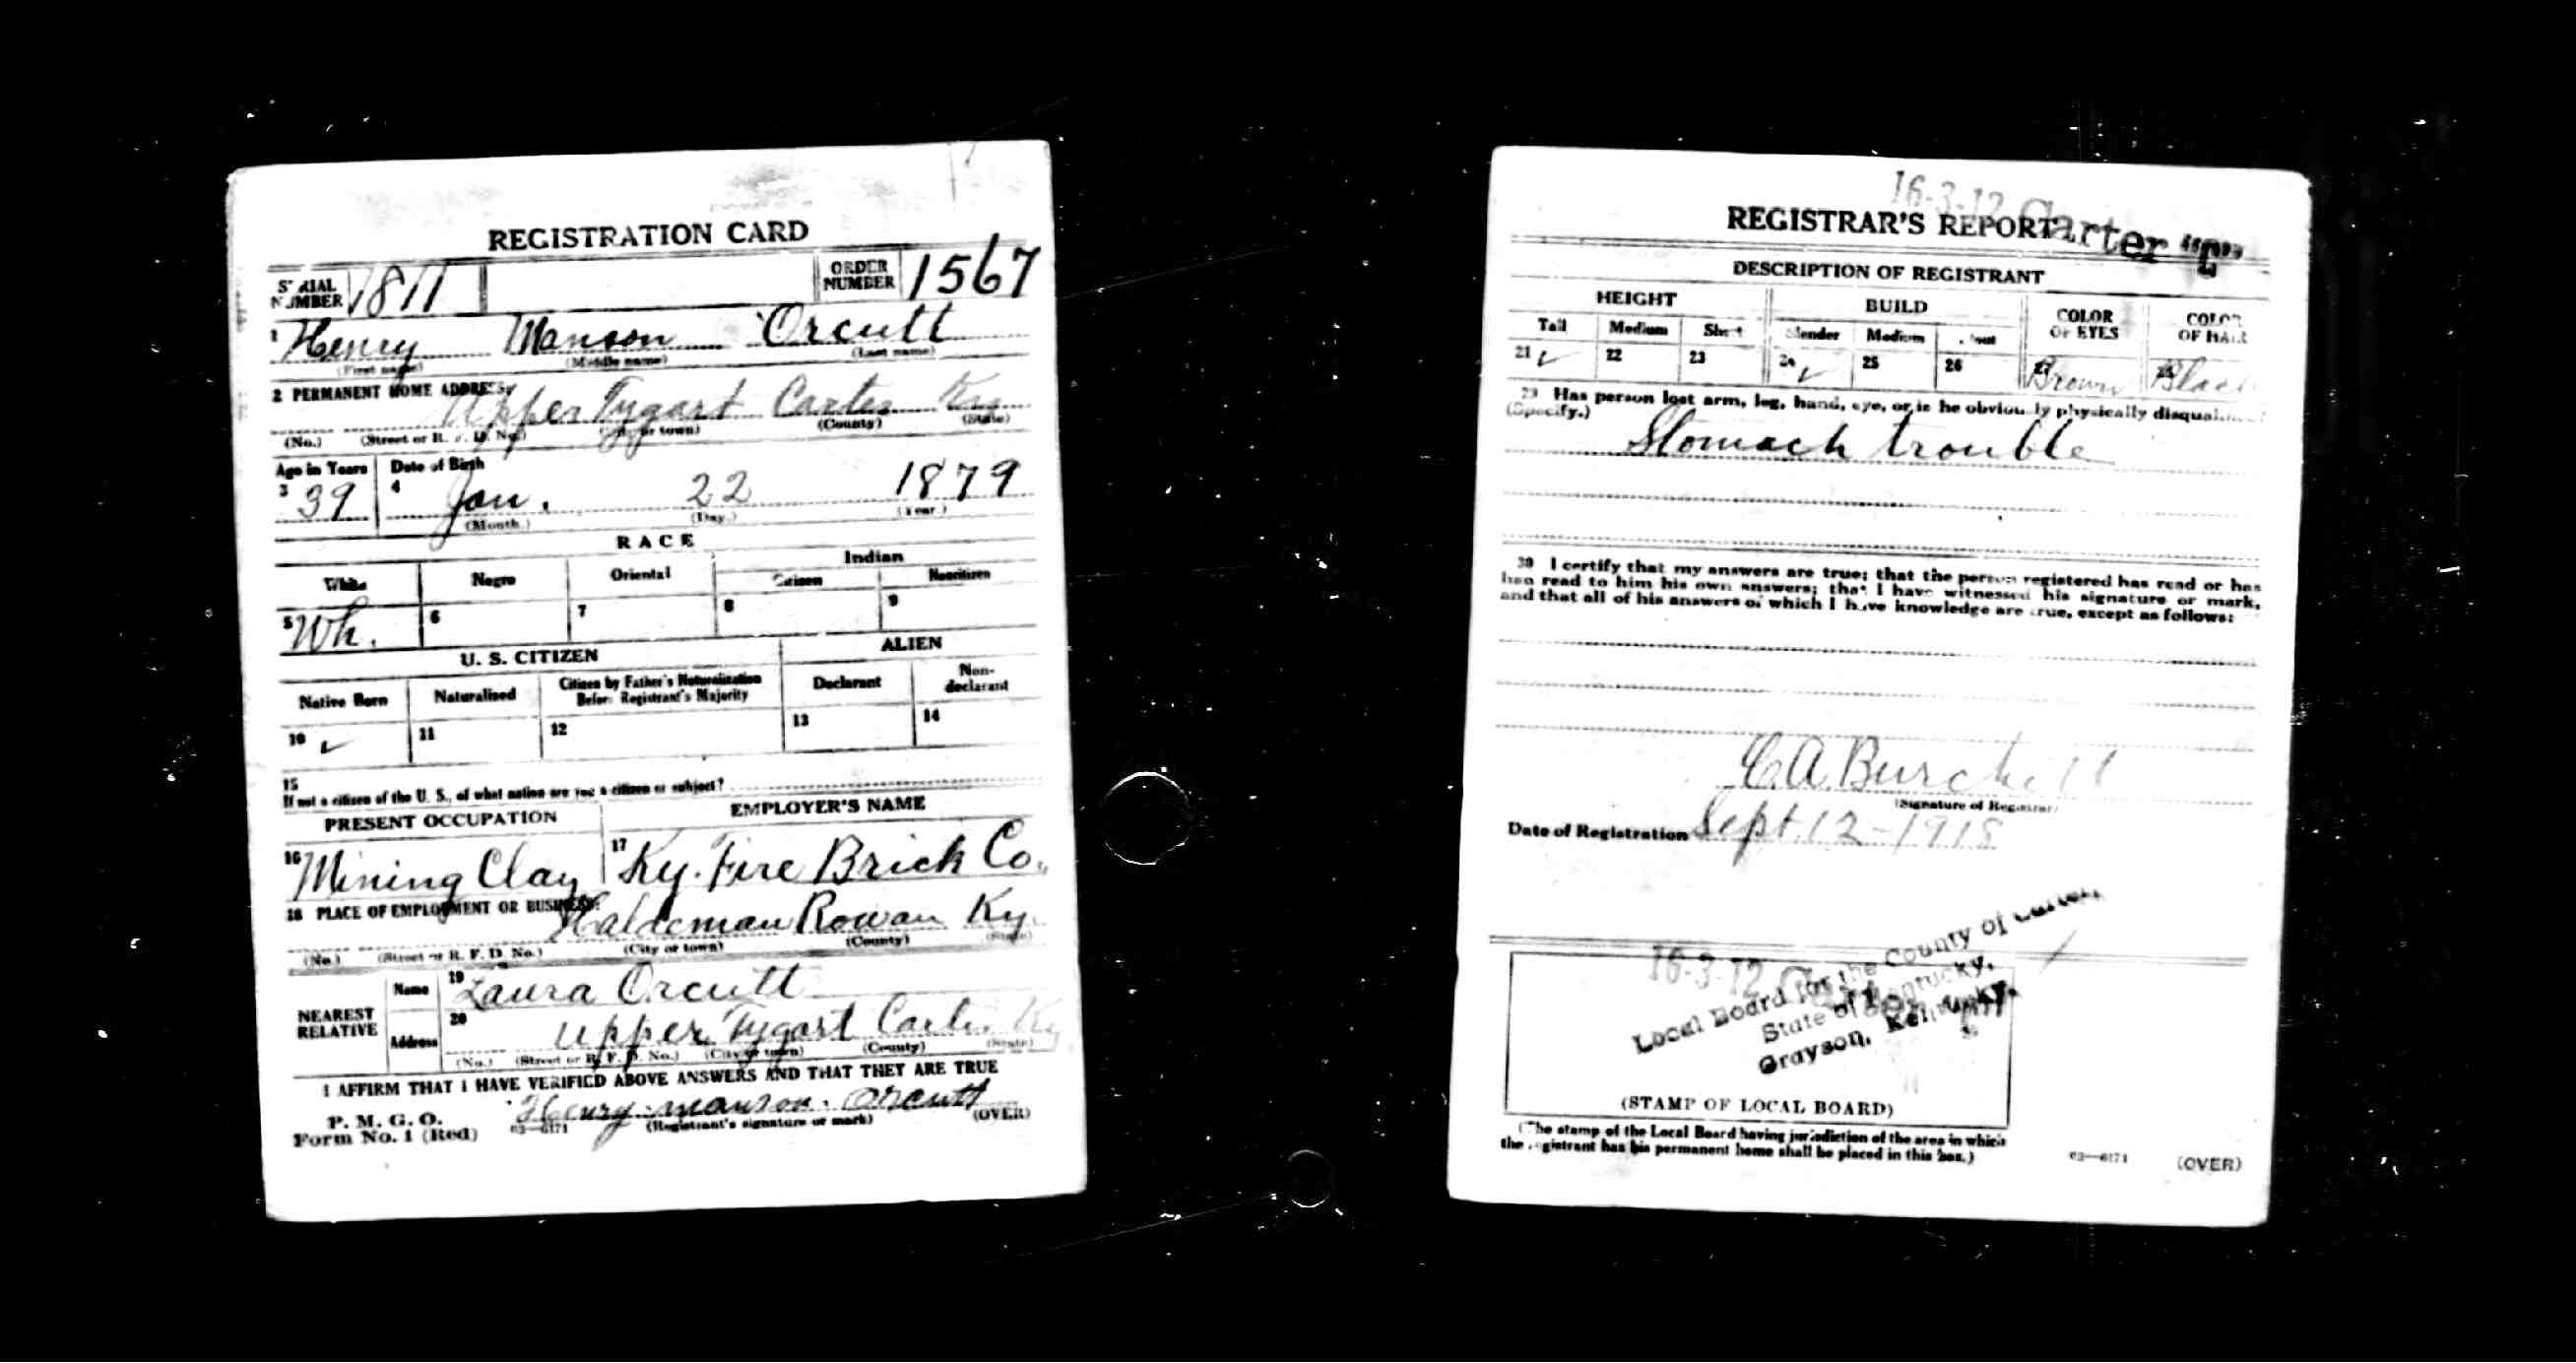 REGISTRATION CARD
SERIAL NUMBER 1811 ORDER NUMBER 1567
1 Henry Manson Orcutt
(First name) (Middle name) (Last name)
2 PERMANENT HOME ADDRESS:
Upper Tygart Carter Ky
(No.) (Street or R. F. D. No.) (City or town) (County) (State)
Age in Years Date of Birth
3 39 4 Jan. 22 1879
(Month.) (Day.) (Year.)
RACE
White Negro Oriental Indian
Citizen Noncitizen
5 Wh. 6 7 8 9
U. S. CITIZEN ALIEN
Native Born Naturalized Citizen by Father's Naturalization Before Registrant's Majority Declarant Non-declarant
10 ✓ 11 12 13 14
15
If not a citizen of the U. S., of what nation are you a citizen or subject?
PRESENT OCCUPATION EMPLOYER'S NAME
16 Mining Clay 17 Ky. Fire Brick Co.
18 PLACE OF EMPLOYMENT OR BUSINESS:
Haldeman Rowan Ky.
(No.) (Street or R. F. D. No.) (City or town) (County) (State)
NEAREST RELATIVE
Name 19 Laura Orcutt
Address 20 Upper Tygart Carter Ky
(No.) (Street or R. F. D. No.) (City or town) (County) (State)
I AFFIRM THAT I HAVE VERIFIED ABOVE ANSWERS AND THAT THEY ARE TRUE
P. M. G. O.
Form No. 1 (Red) 03—6171 Henry manson. Orcutt
(Registrant's signature or mark) (OVER)
16-3-12 Carter "C"
REGISTRAR'S REPORT
DESCRIPTION OF REGISTRANT
HEIGHT BUILD COLOR OF EYES COLOR OF HAIR
Tall Medium Short Slender Medium Stout
21 ✓ 22 23 24 ✓ 25 26 27 Brown 28 Black
29 Has person lost arm, leg, hand, eye, or is he obviously physically disqualified?
(Specify.)
Stomach trouble
30 I certify that my answers are true; that the person registered has read or has
had read to him his own answers; that I have witnessed his signature or mark,
and that all of his answers of which I have knowledge are true, except as follows:
C.A. Burchett
(Signature of Registrar)
Date of Registration Sept. 12-1918
16-3-12
Local Board for the County of Carter,
State of Kentucky,
Grayson, Kentucky.
(STAMP OF LOCAL BOARD)
(The stamp of the Local Board having jurisdiction of the area in which
the registrant has his permanent home shall be placed in this box.)
03—6171 (OVER)